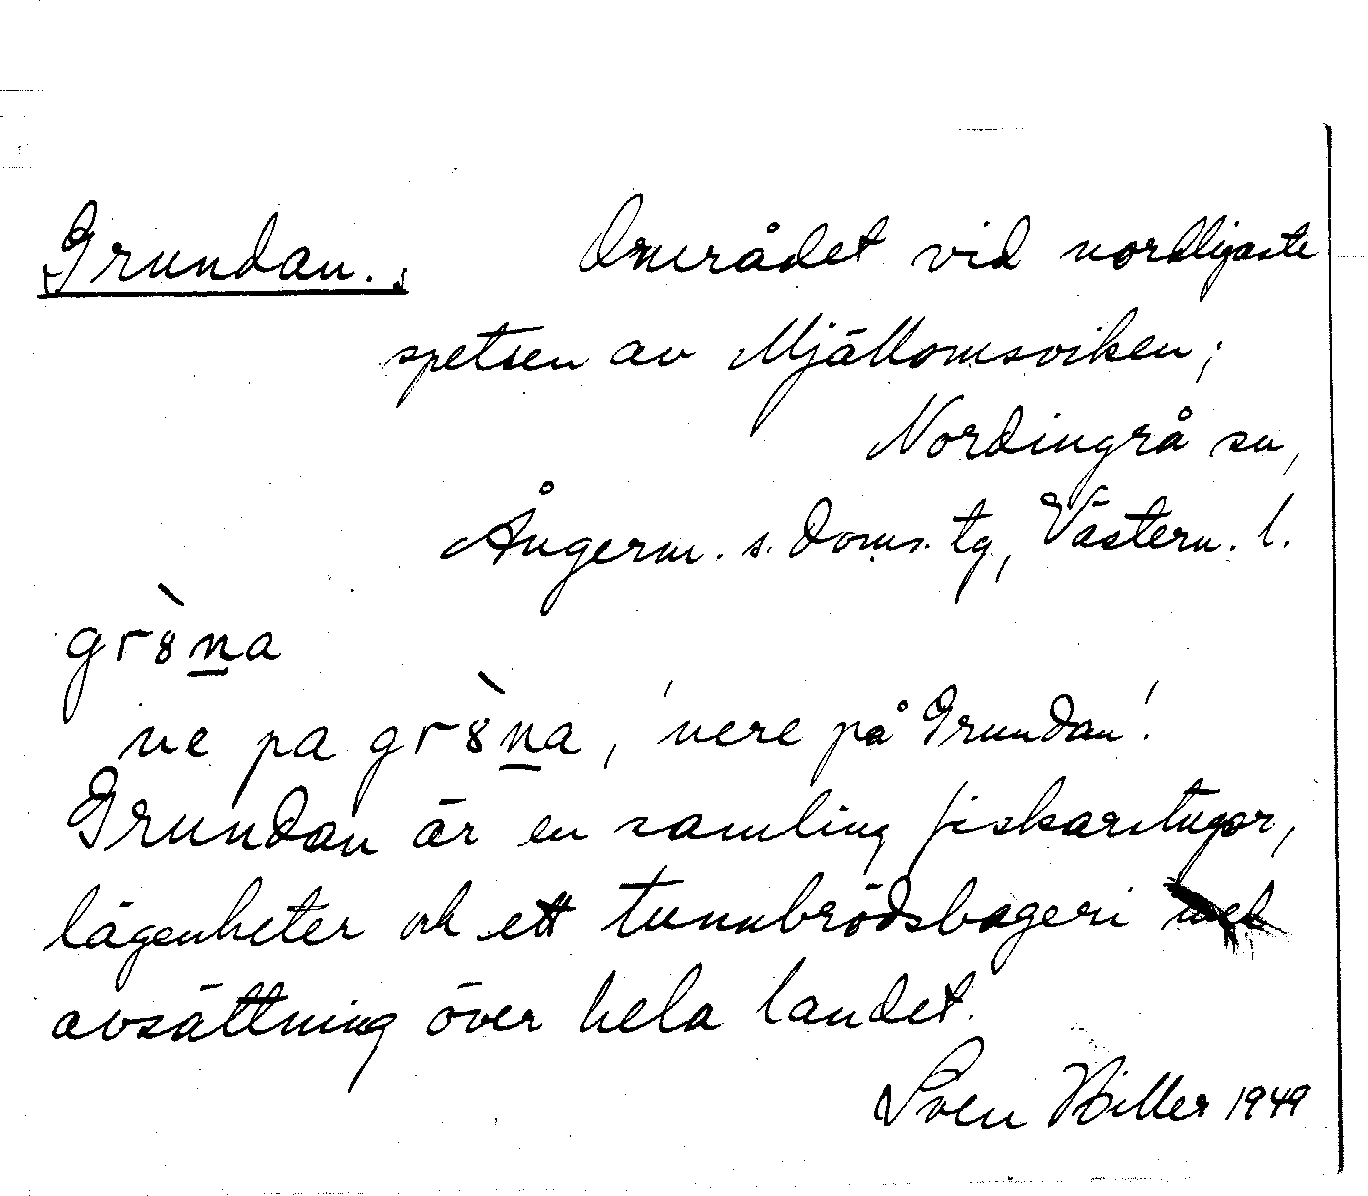 Grundan.; Området vid nordligaste
spetsen av Mjällomsviken;
Nordingrå sn,
Ångerm. s. doms. tg, Västern. l.
gr8̀n̲a
ne pa gr8̀n̲a, 'nere på Grundan'.
Grundan är en samling fiskarstugor,
lägenheter och ett tunnbrödsbageri med
avsättning över hela landet.
Sven Hiller 1949